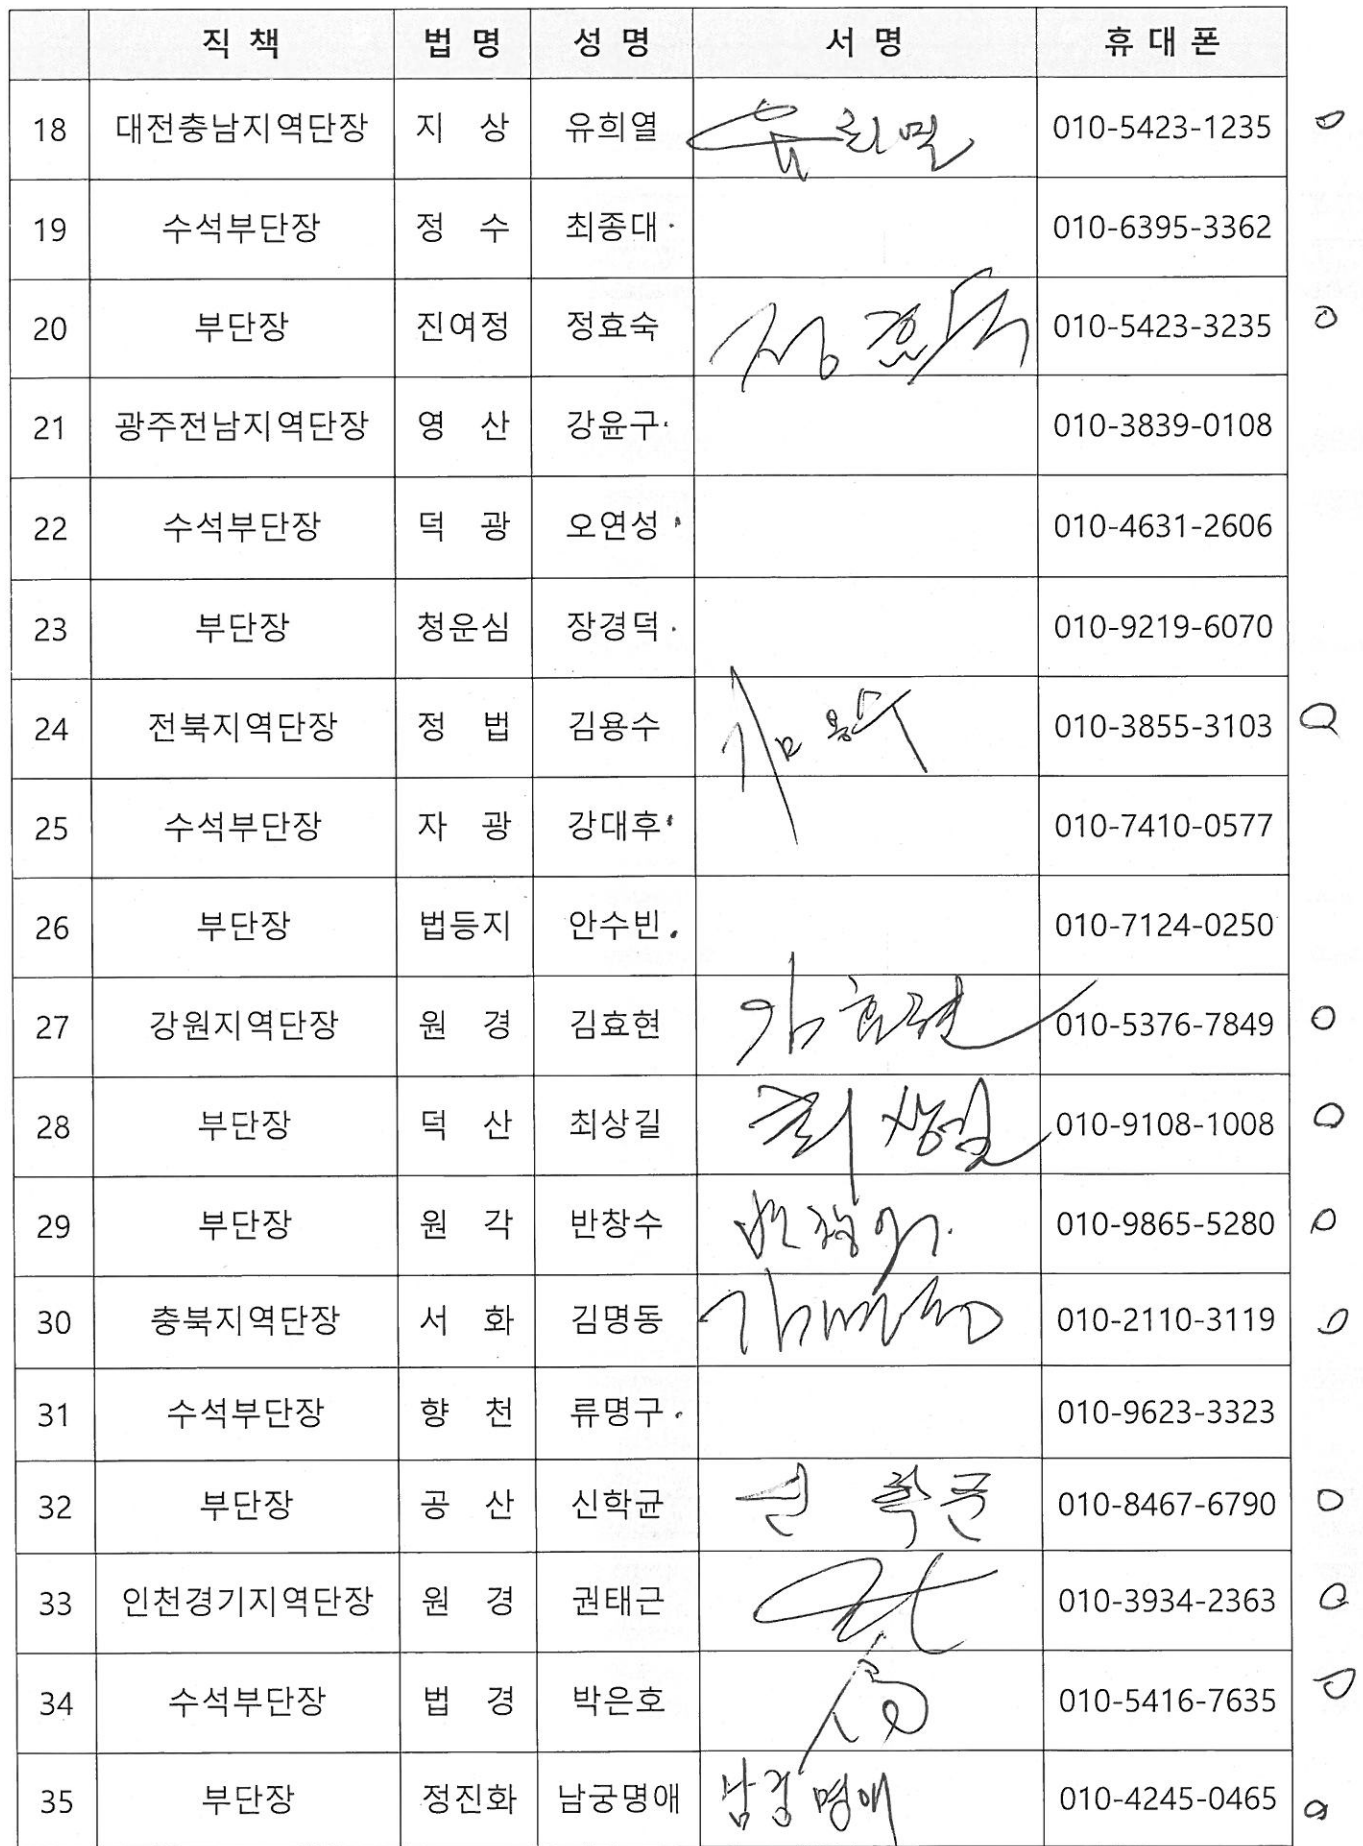 직 책 법 명 성 명 서 명 휴 대 폰
18 대전충남지역단장 지 상 유희열 010-5423-1235
19 수석부단장 정 수 최종대 010-6395-3362
20 부단장 진여정 정효숙 010-5423-3235
21 광주전남지역단장 영 산 강윤구 010-3839-0108
22 수석부단장 덕 광 오연성 010-4631-2606
23 부단장 청운심 장경덕 010-9219-6070
24 전북지역단장 정 법 김용수 김용수 010-3855-3103
25 수석부단장 자 광 강대후 010-7410-0577
26 부단장 법등지 안수빈 010-7124-0250
27 강원지역단장 원 경 김효현 김효현 010-5376-7849
28 부단장 덕 산 최상길 최상길 010-9108-1008
29 부단장 원 각 반창수 반창수 010-9865-5280
30 충북지역단장 서 화 김명동 김명동 010-2110-3119
31 수석부단장 향 천 류명구 010-9623-3323
32 부단장 공 산 신학균 신학균 010-8467-6790
33 인천경기지역단장 원 경 권태근 010-3934-2363
34 수석부단장 법 경 박은호 010-5416-7635
35 부단장 정진화 남궁명애 남궁명애 010-4245-0465